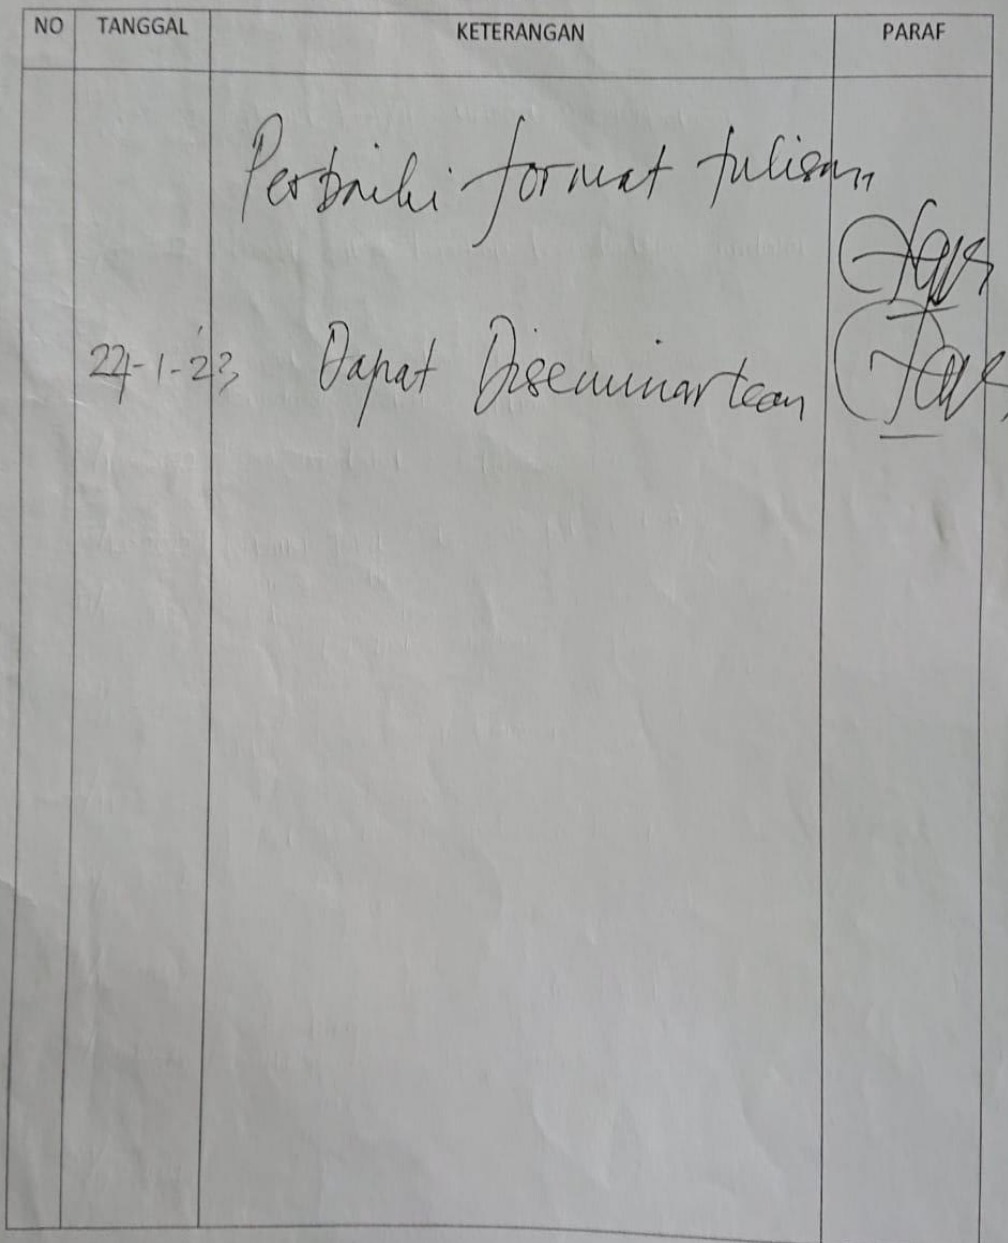 NO TANGGAL KETERANGAN PARAF
Perbaiki format tulisan
24-1-23 Dapat Diseminarkan